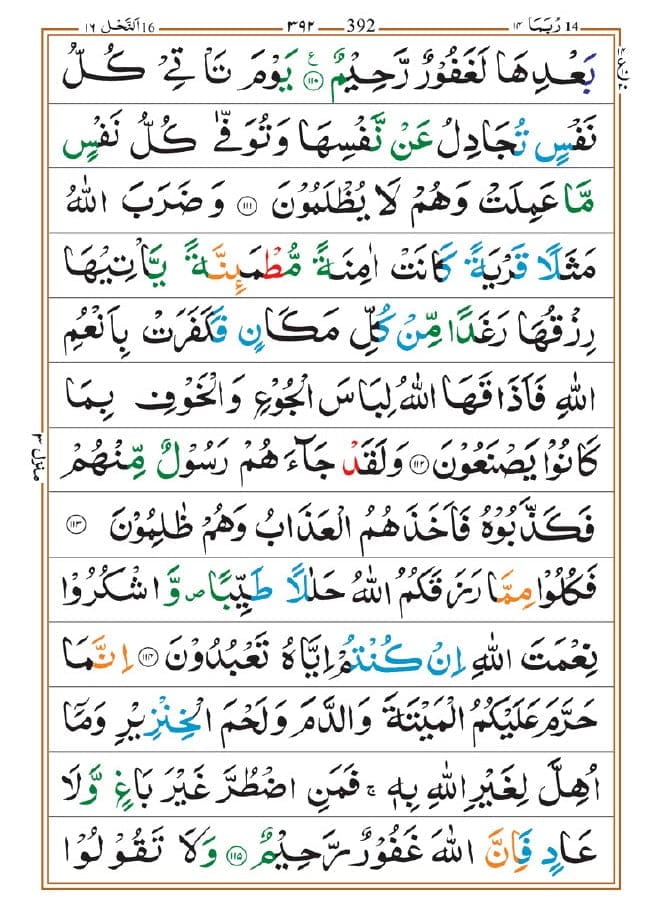 14 رُبَمَا ١٤ 392 ٣٩٢ 16 اَلنَّحْل ١٦
بَعْدِهَا لَغَفُوْرٌ رَّحِيْمٌ ١١٠ ع يَوْمَ تَاْتِيْ كُلُّ
نَفْسٍ تُجَادِلُ عَنْ نَّفْسِهَا وَتُوَفّٰى كُلُّ نَفْسٍ
مَّا عَمِلَتْ وَهُمْ لَا يُظْلَمُوْنَ ١١١ وَ ضَرَبَ اللّٰهُ
مَثَلًا قَرْيَةً كَانَتْ اٰمِنَةً مُّطْمَىِٕنَّةً يَّاْتِيْهَا
رِزْقُهَا رَغَدًا مِّنْ كُلِّ مَكَانٍ فَكَفَرَتْ بِاَنْعُمِ
اللّٰهِ فَاَذَاقَهَا اللّٰهُ لِبَاسَ الْجُوْعِ وَالْخَوْفِ بِمَا
كَانُوْا يَصْنَعُوْنَ ١١٢ وَلَقَدْ جَآءَهُمْ رَسُوْلٌ مِّنْهُمْ
فَكَذَّبُوْهُ فَاَخَذَهُمُ الْعَذَابُ وَهُمْ ظٰلِمُوْنَ ١١٣
فَكُلُوْا مِمَّا رَزَقَكُمُ اللّٰهُ حَلٰلًا طَيِّبًا ص وَّاشْكُرُوْا
نِعْمَتَ اللّٰهِ اِنْ كُنْتُمْ اِيَّاهُ تَعْبُدُوْنَ ١١٤ اِنَّمَا
حَرَّمَ عَلَيْكُمُ الْمَيْتَةَ وَالدَّمَ وَلَحْمَ الْخِنْزِيْرِ وَمَآ
اُهِلَّ لِغَيْرِ اللّٰهِ بِهٖ ج فَمَنِ اضْطُرَّ غَيْرَ بَاغٍ وَّلَا
عَادٍ فَاِنَّ اللّٰهَ غَفُوْرٌ رَّحِيْمٌ ١١٥ وَلَا تَقُوْلُوْا
منزل ٣